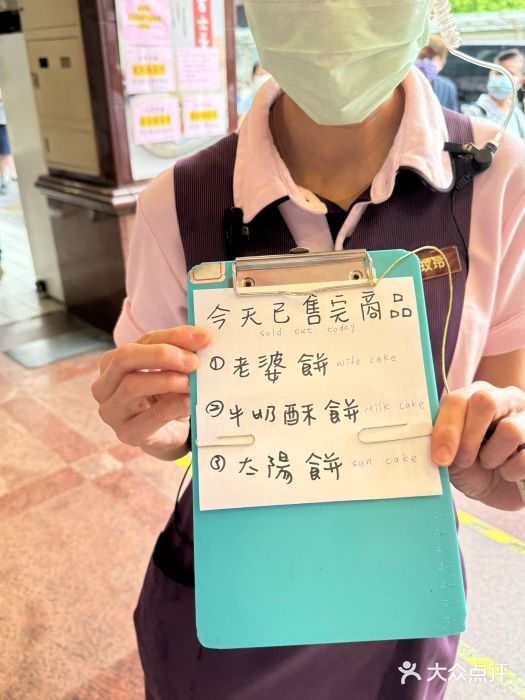 今天已售完商品
sold out today
① 老婆餅 wife cake
② 牛奶酥餅 Milk cake
③ 太陽餅 sun cake
玟玲
大众点评